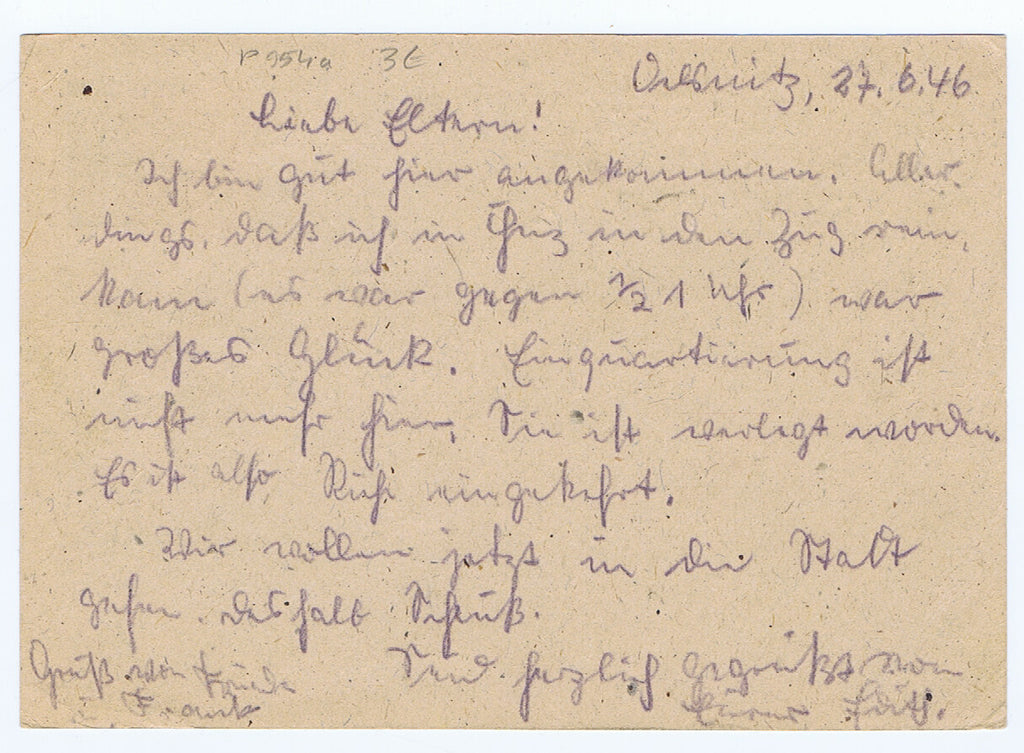 P 954a 3E
Oelsnitz, 27.6.46.
Liebe Eltern!
Ich bin gut hier angekommen. Aller-
dings, daß ich in in den Zug rein-
kam (es war gegen 1/2 1 Uhr) war
großes Glück. Einquartierung ist
nicht mehr hier. Sie ist verlegt worden.
Es ist also Ruhe eingekehrt.
Wir wollen jetzt in die Stadt
gehen, deshalb Schluß.
Seid herzlich gegrüßt von
Eurer Edith.
Gruß von
Frank